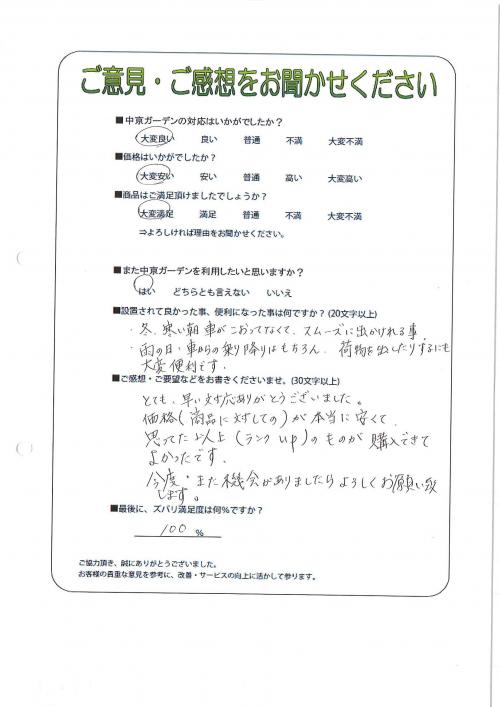 ご意見・ご感想をお聞かせください
■中京ガーデンの対応はいかがでしたか？
大変良い 良い 普通 不満 大変不満
■価格はいかがでしたか？
大変安い 安い 普通 高い 大変高い
■商品はご満足頂けましたでしょうか？
大変満足 満足 普通 不満 大変不満
⇒よろしければ理由をお聞かせください。
■また中京ガーデンを利用したいと思いますか？
はい どちらとも言えない いいえ
■設置されて良かった事、便利になった事は何ですか？(20文字以上)
・冬、寒い朝 車がこおってなくて、スムーズに出かけれる事
・雨の日・車からの乗り降りはもちろん、荷物を出したりするにも
大変便利です．
■ご感想・ご要望などをお書きくださいませ。(30文字以上)
とても、早い対応ありがとうございました。
価格(商品に対しての)が本当に安くて
思ってた以上(ランクup)のものが購入できて
よかったです．
今度・また機会がありましたらよろしくお願い致
します。
■最後に、ズバリ満足度は何%ですか？
100 %
ご協力頂き、誠にありがとうございました。
お客様の貴重な意見を参考に、改善・サービスの向上に活かして参ります。